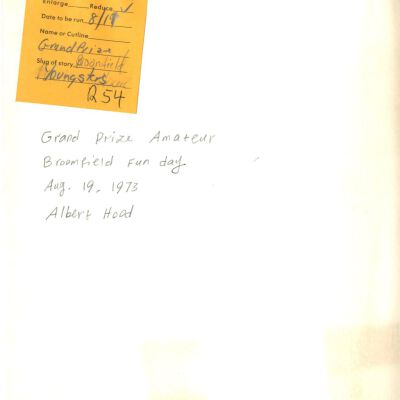 Enlarge Reduce ✓
Date to be run 8/19
Name or Cutline
Grand Prize
Slug of story Broomfield
Youngsters
R54
Grand Prize Amateur
Broomfield Fun day
Aug. 19, 1973
Albert Hood